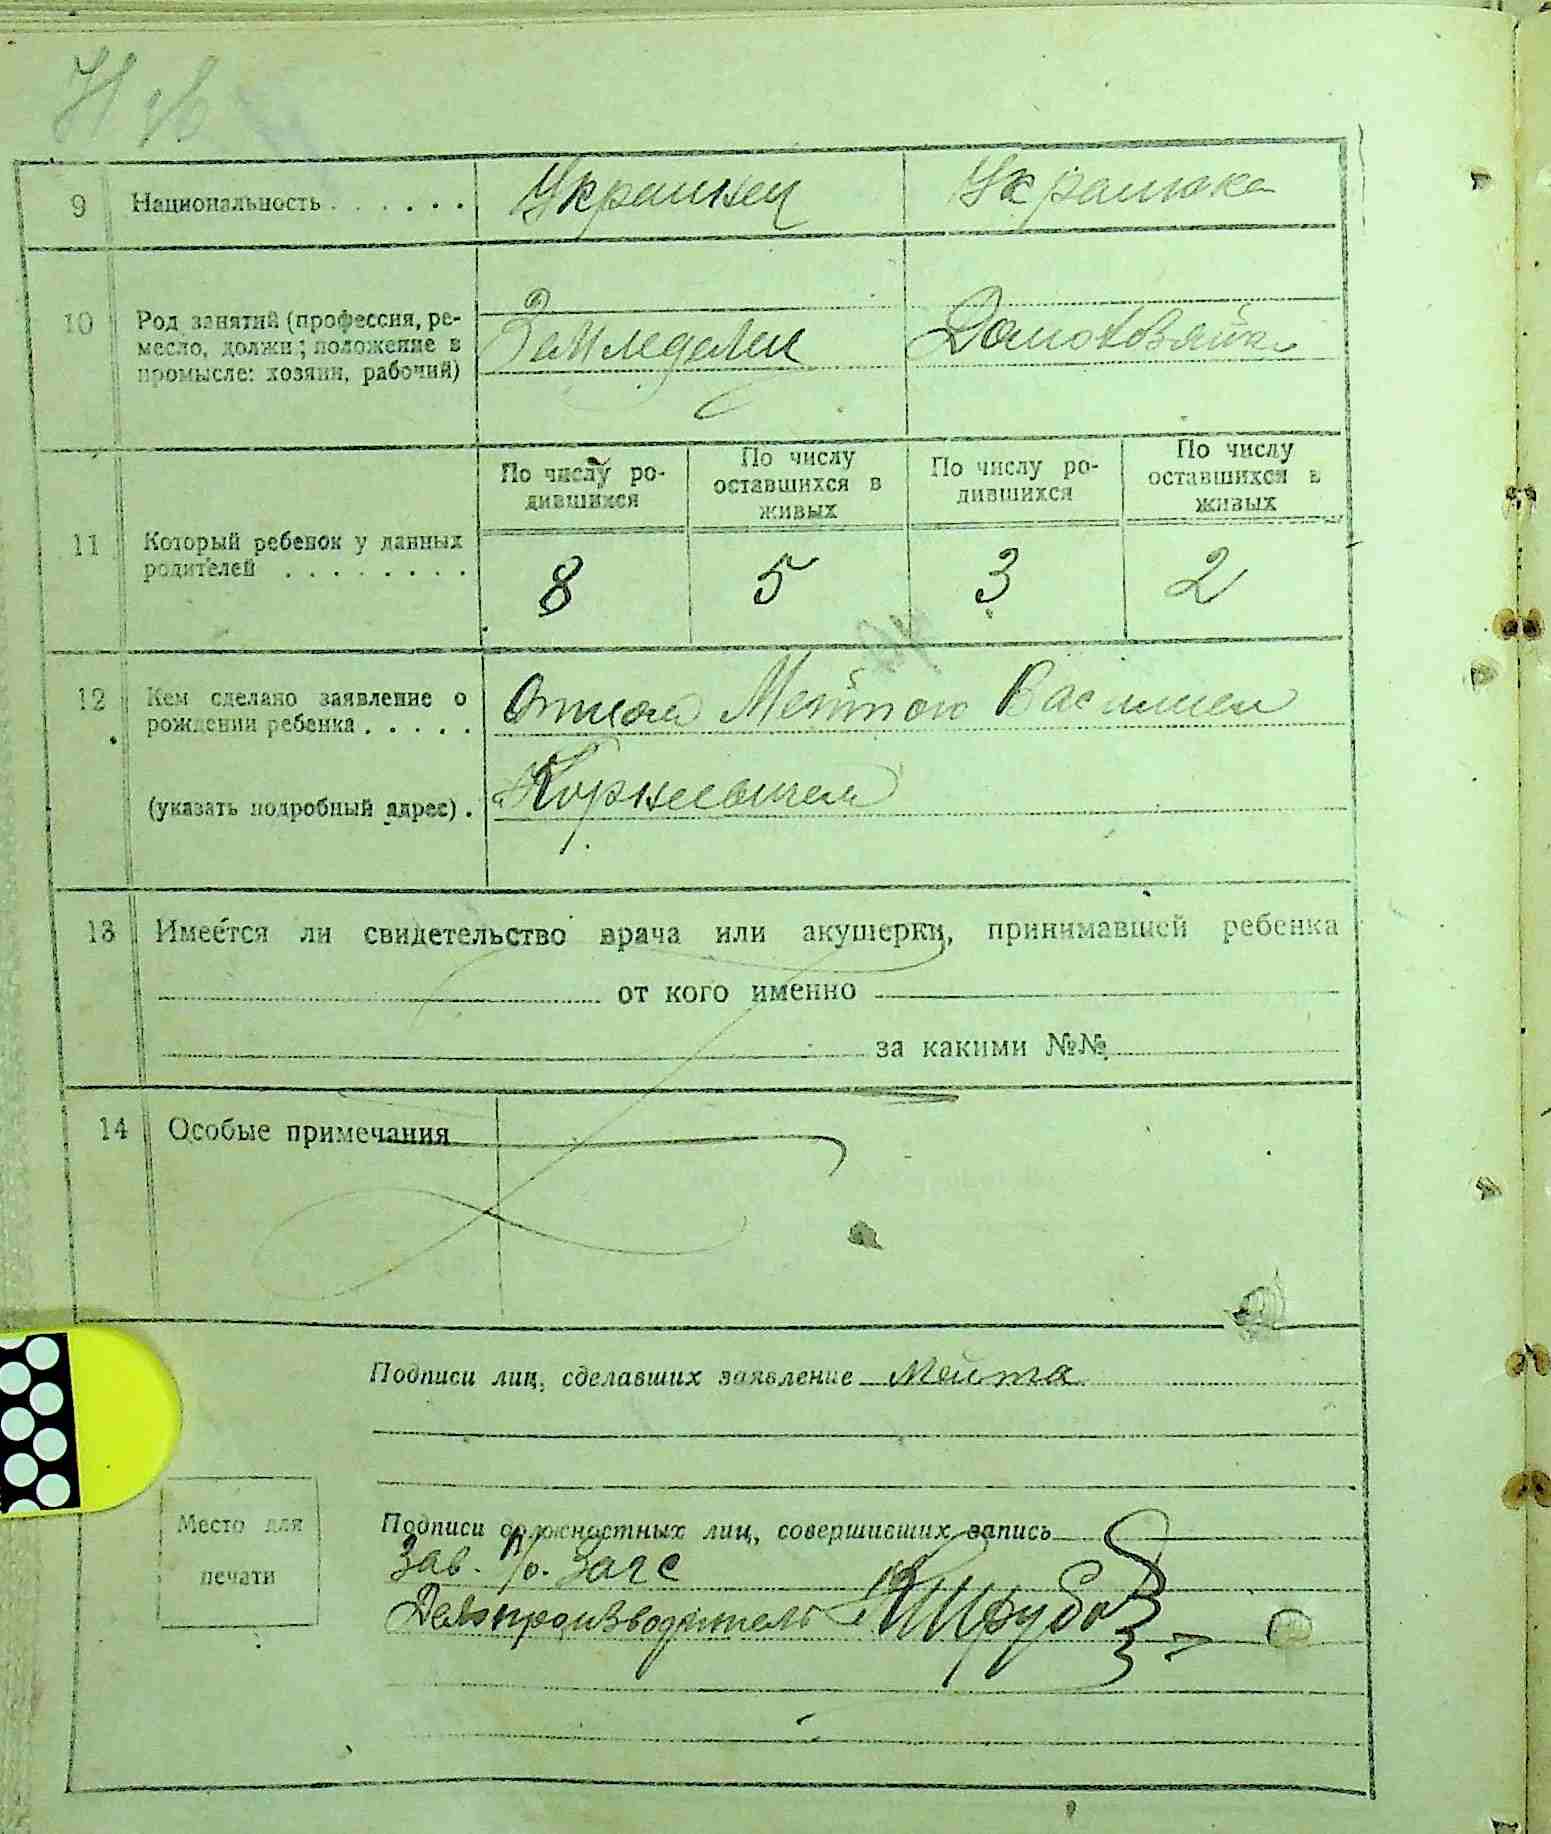 9 Национальность . . . . . . Украинец Украинка
10 Род занятий (профессия, ре-
месло, должн.; положение в
промысле: хозяин, рабочий)
Земледелец Домохозяйка
11 Который ребенок у данных
родителей . . . . . . . .
По числу ро-
дившихся
По числу
оставшихся в
живых
По числу ро-
дившихся
По числу
оставшихся в
живых
8 5 3 2
12 Кем сделано заявление о
рождении ребенка . . . . .
(указать подробный адрес) .
Отцом Мейтою Василием
Корнеевичем
13 Имеется ли свидетельство врача или акушерки, принимавшей ребенка
от кого именно
за какими №№
14 Особые примечания
Подписи лиц, сделавших заявление Мейта
Место для
печати
Подписи должностных лиц, совершивших запись
Зав. п/о. Загс
Делопроизводитель